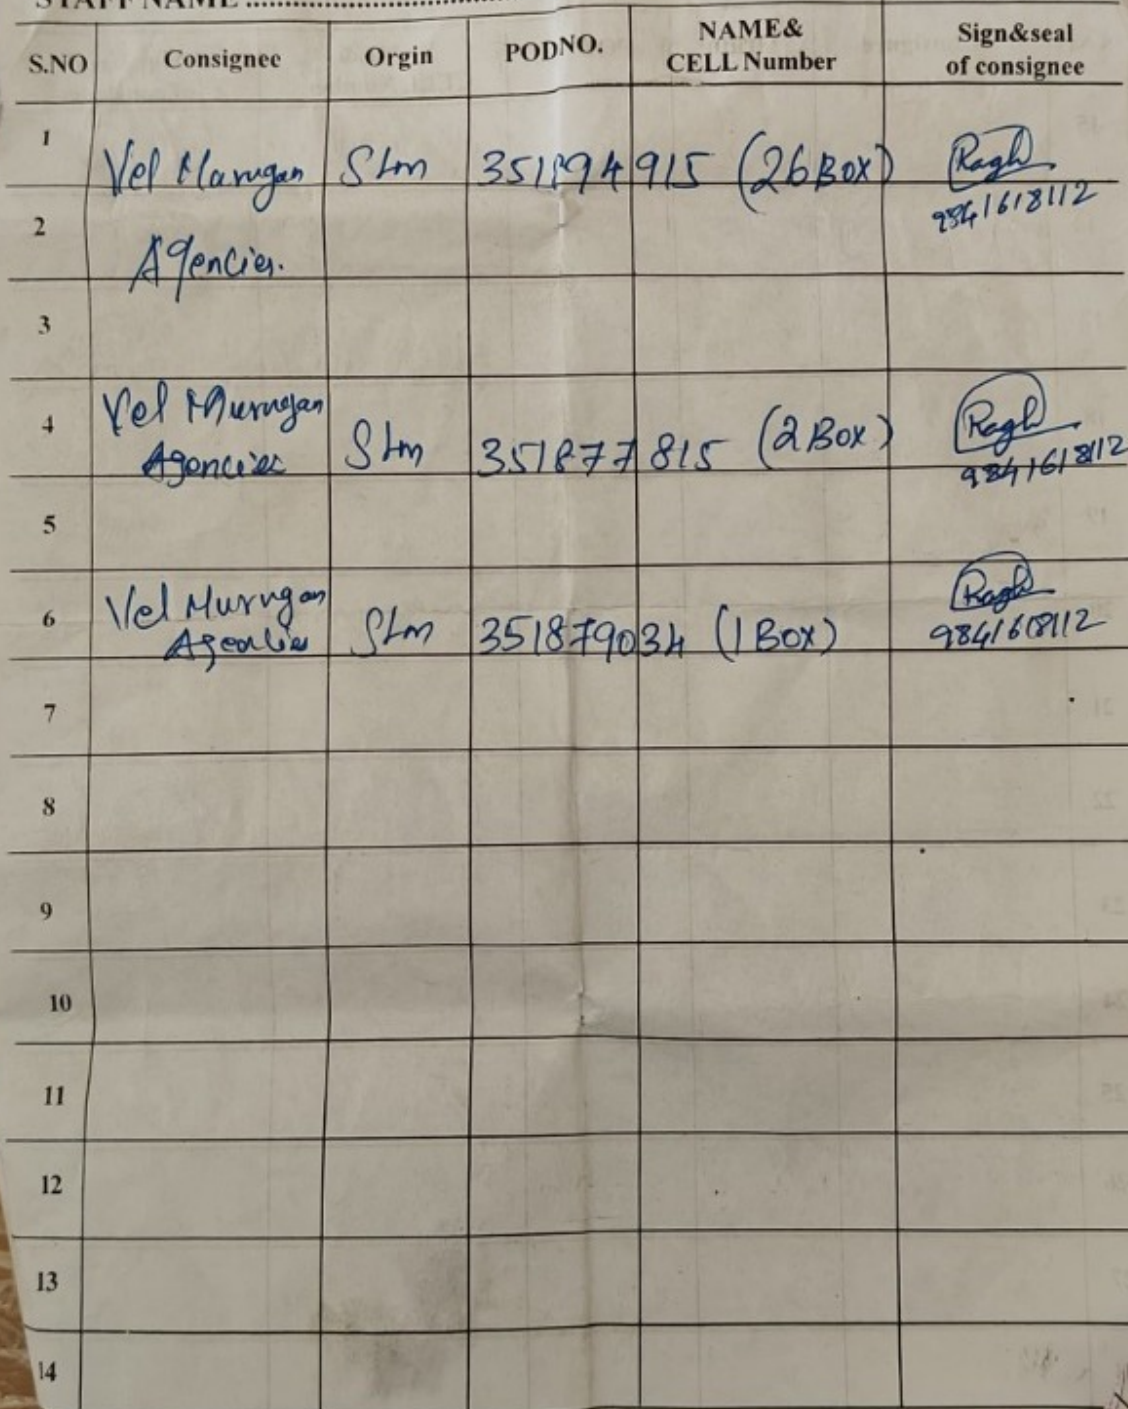 STAFF NAME ........................
S.NO Consignee Orgin PODNO. NAME& CELL Number Sign&seal of consignee
1 Vel Marugan Slm 351894915 (26 Box) Ragh
9841618112
2 Agencies.
3
4 Vel Murugan Slm 351877815 (2 Box) Ragh
Agencies 9841618112
5
6 Vel Murugan Slm 351879034 (1 Box) Ragh
Agencies 9841618112
7
8
9
10
11
12
13
14